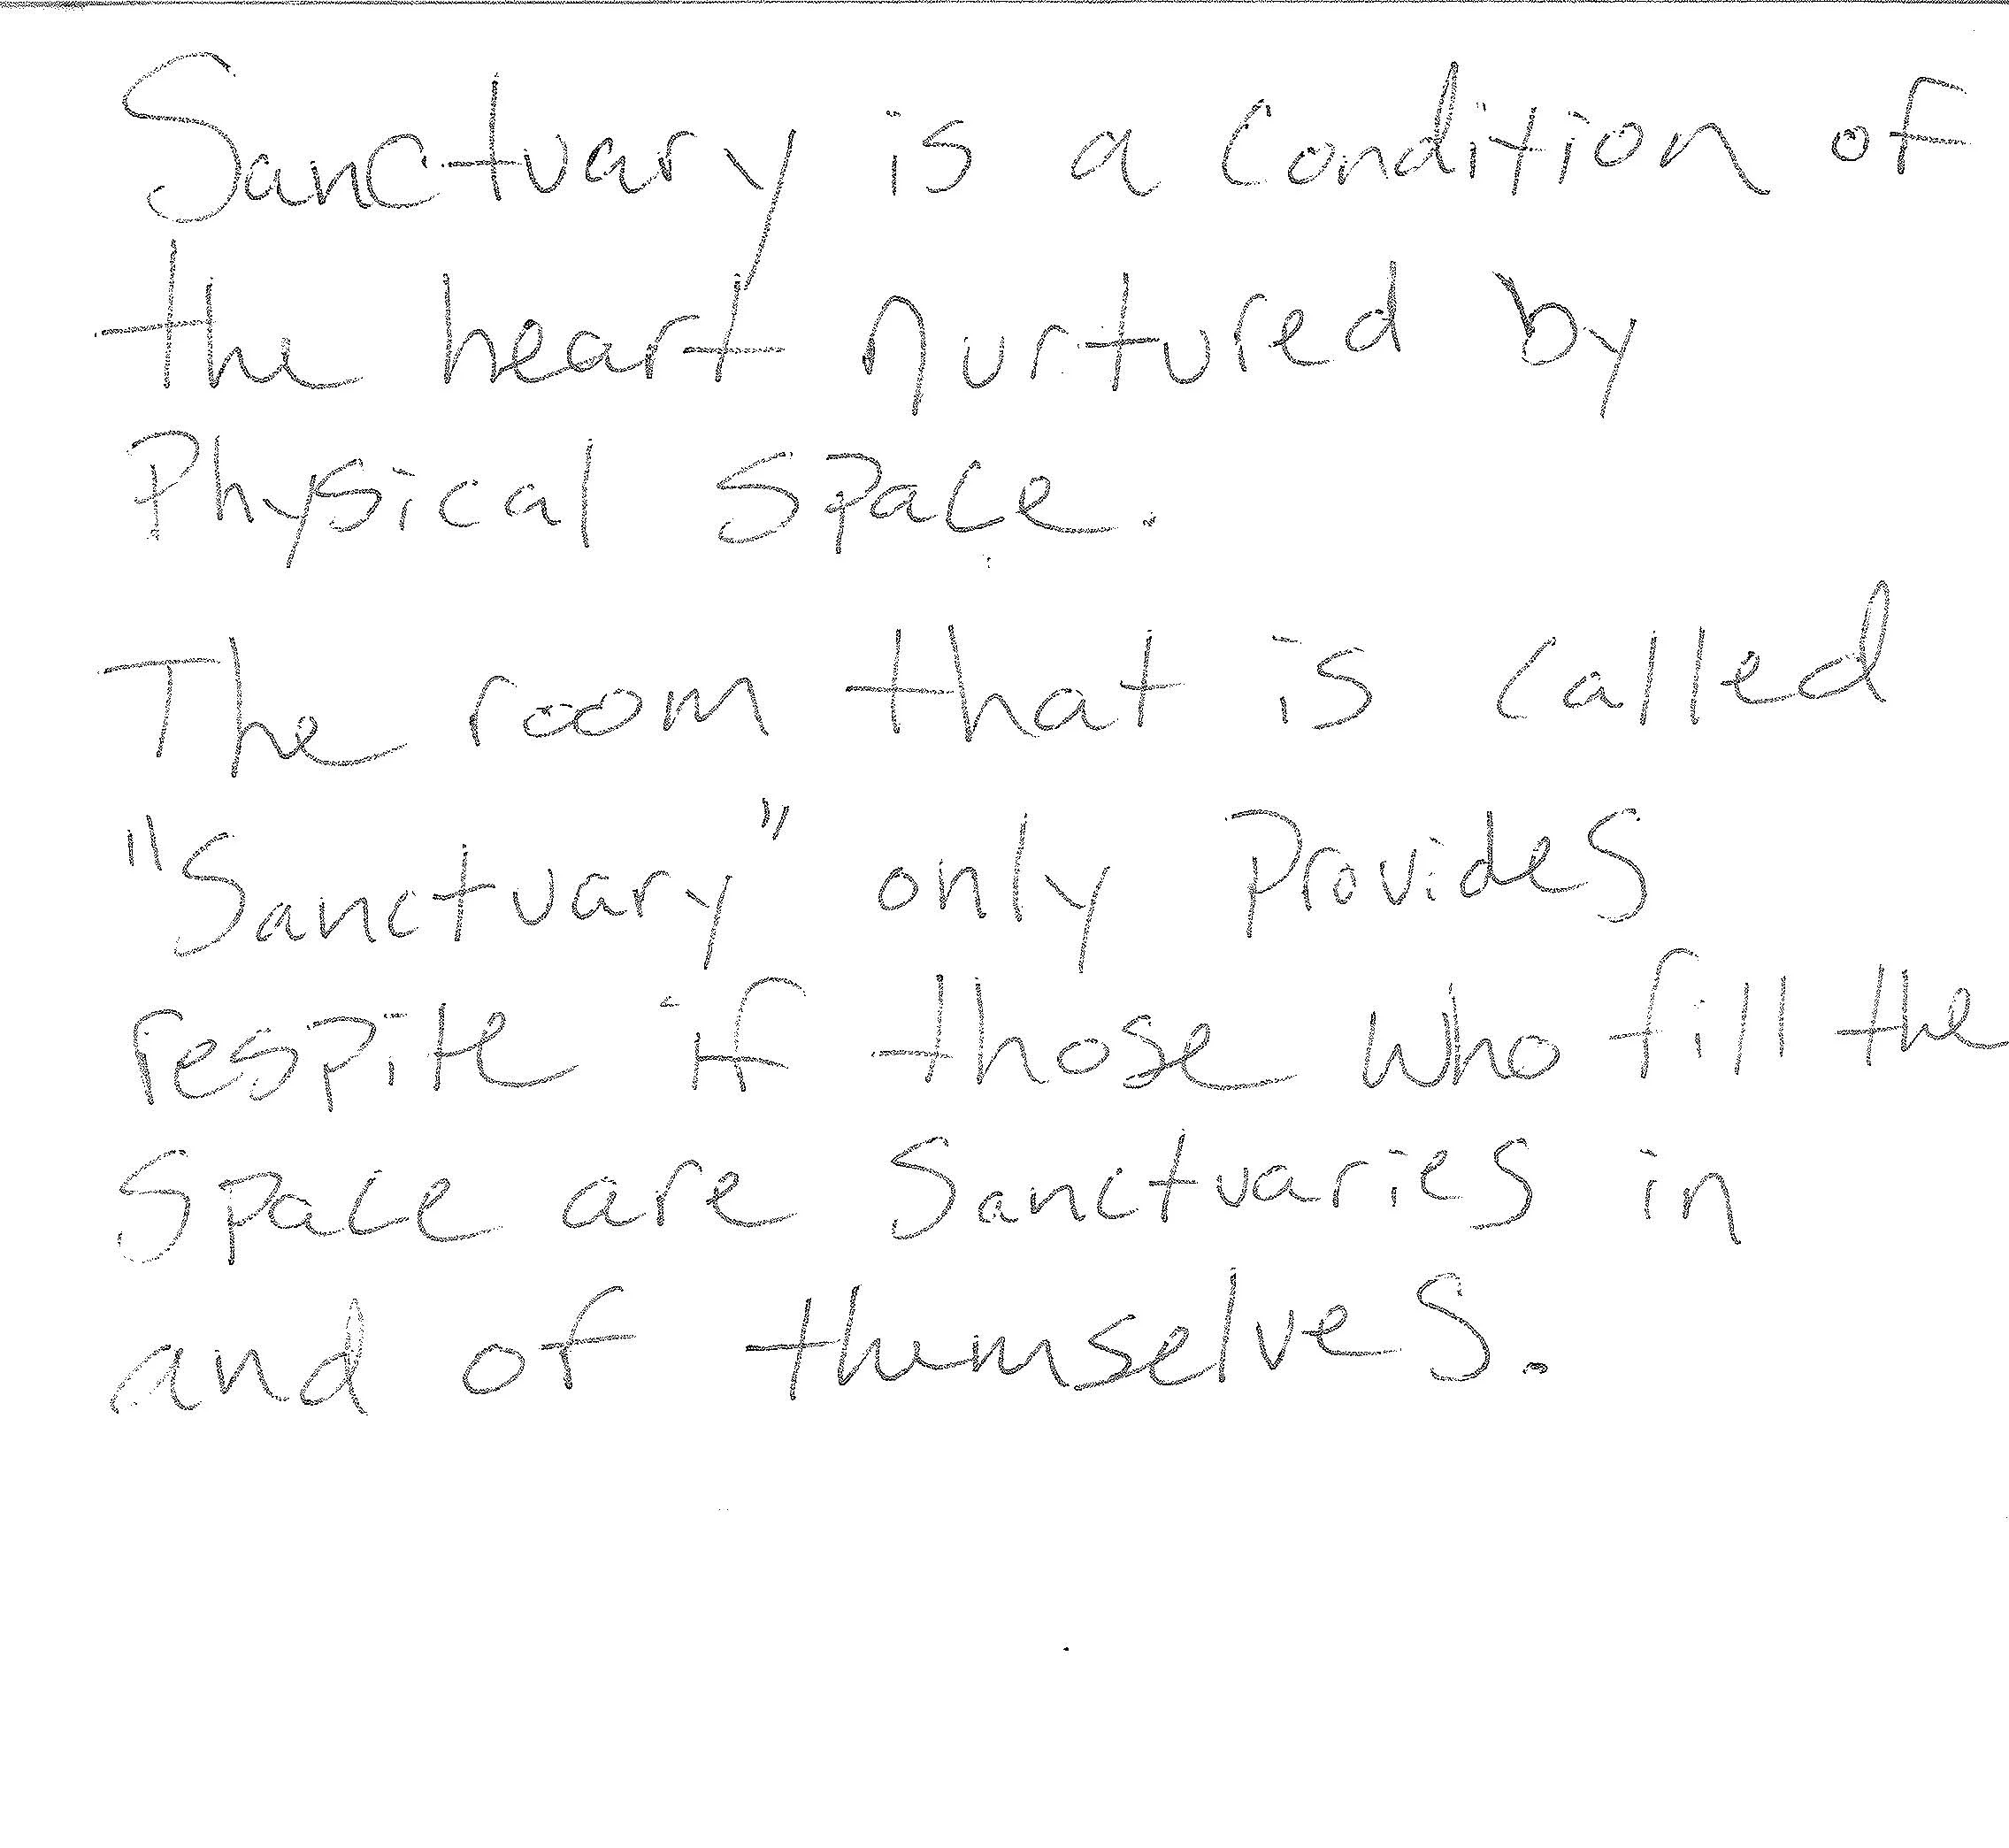 Sanctuary is a condition of
the heart nurtured by
Physical Space.
The room that is called
"Sanctuary" only Provides
respite if those who fill the
Space are Sanctuaries in
and of themselves.